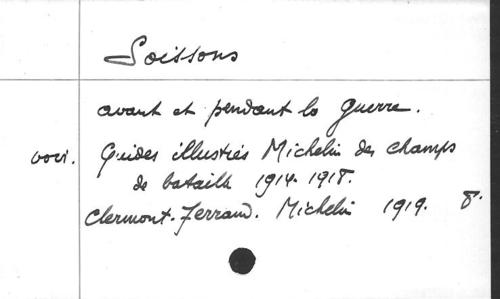 Soissons
avant et pendant la guerre.
voir. Guides illustrés Michelin des champs
de bataille 1914-1918.
Clermont-Ferrand. Michelin 1919. 8°